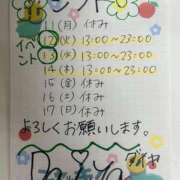 シフト
11(月)休み
イベント
12(火)13:00~23:00
13(水)13:00~23:00
14(木)13:00~23:00
15(金)休み
16(土)休み
17(日)休み
よろしくお願いします。
ダイヤ